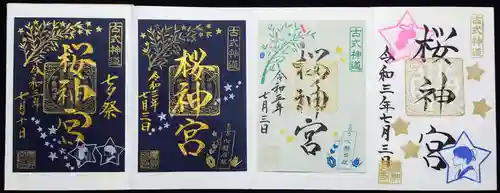 古式神道
桜神宮
七夕祭
令和三年
七月十日
古式神道
桜神宮
令和三年
七月三日
古式神道
桜神宮
令和三年
七月三日
古式神道
桜神宮
令和三年七月三日